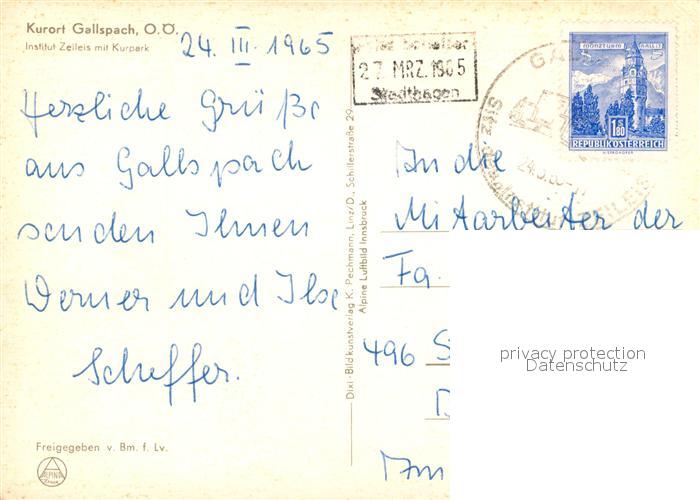 Kurort Gallspach, O.Ö.
Institut Zeileis mit Kurpark
24. III. 1965
Herzliche Grüße
aus Gallspach
senden Ihnen
Werner und Ilse
Scheffer.
Freigegeben v. Bm. f. Lv.
ALPINA
Druck
Dixi-Bildkunstverlag K. Pechmann, Linz/D., Schillerstraße 29
Alpine Luftbild Innsbruck
27. MRZ. 1965
Stadthagen
MÜNZTURM HALL i. T.
S 1.80
REPUBLIK ÖSTERREICH
GALLS
24.3.65
ZEILEIS
An die
Mitarbeiter der
Fa.
496 S
privacy protection
Datenschutz